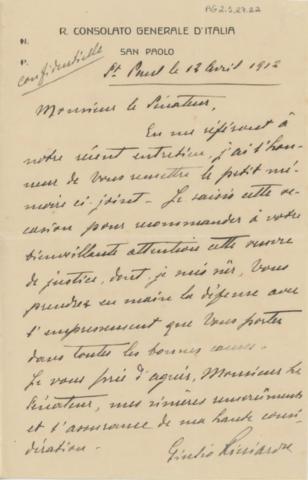 AG2.5.27.22
R. CONSOLATO GENERALE D'ITALIA
SAN PAOLO
N.
P.
confidentielle
St Paul le 12 avril 1912
Monsieur le Sénateur,
En me référant à
notre récent entretien, j'ai l'hon-
neur de Vous remettre le petit mé-
moire ci-joint. Je saisis cette oc-
casion pour recommander à votre
bienveillante attention cette œuvre
de justice, dont, je suis sûr, Vous
prendrez en main la défense avec
l'empressement que Vous portez
dans toutes les bonnes causes.
Je vous prie d'agréer, Monsieur le
Sénateur, mes sincères remerciements
et l'assurance de ma haute consi-
dération.
Giulio Ricciardi